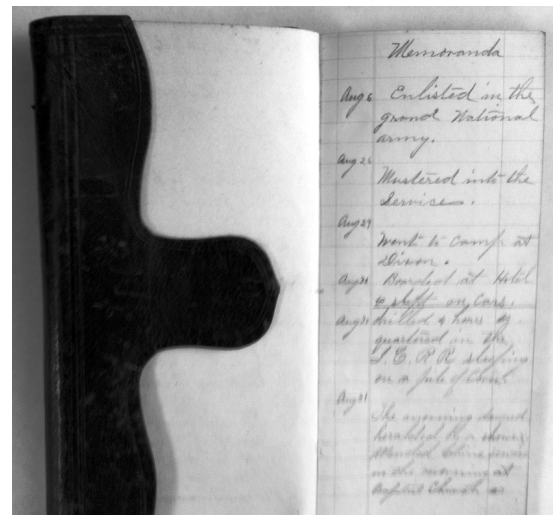 Memoranda
Aug 6 Enlisted in the
grand National
army.
Aug 26
Mustered into the
Service.
Aug 29
Went to Camp at
Dixon.
Boarded at Hotel
& slept on Cars,
drilled 4 hours &
quartered in the
I. C. R R sleeping
on a pile of
Aug 31
The morning
heralded by a
in the morning at
Baptist Church